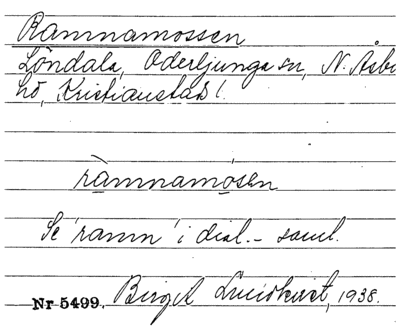 Ramnamossen
Löndala, Oderljunga sn, N. Åsbo
hd, Kristianstads l.
ràmnamósen
Se 'ramn' i dial.- saml.
Nr 5499. Birgit Lindkvist, 1938.